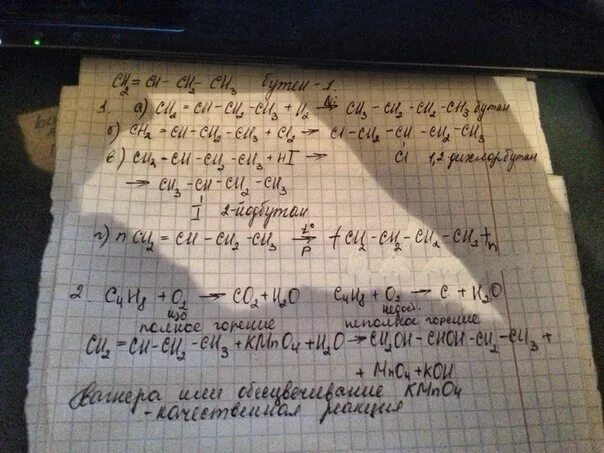 CH2=CH-CH2-CH3 бутен-1.
1. а) CH2=CH-CH2-CH3+H2 →Ni CH3-CH2-CH2-CH3 бутан
б) CH2=CH-CH2-CH3+Cl2 → Cl-CH2-CH-CH2-CH3
Cl 1,2 дихлорбутан
в) CH2=CH-CH2-CH3+HI →
→ CH3-CH-CH2-CH3
I 2-йодбутан
г) n CH2=CH-CH2-CH3 →t° P (-CH2-CH2-CH2-CH2-)n
2. C4H8+O2 → CO2+H2O C4H8+O2 → C+H2O
изб недост.
полное горение неполное горение
CH2=CH-CH2-CH3+KMnO4+H2O → CH2OH-CHOH-CH2-CH3+
+ MnO4+KOH
Вагнера или обесцвечивание KMnO4
-качественная реакция